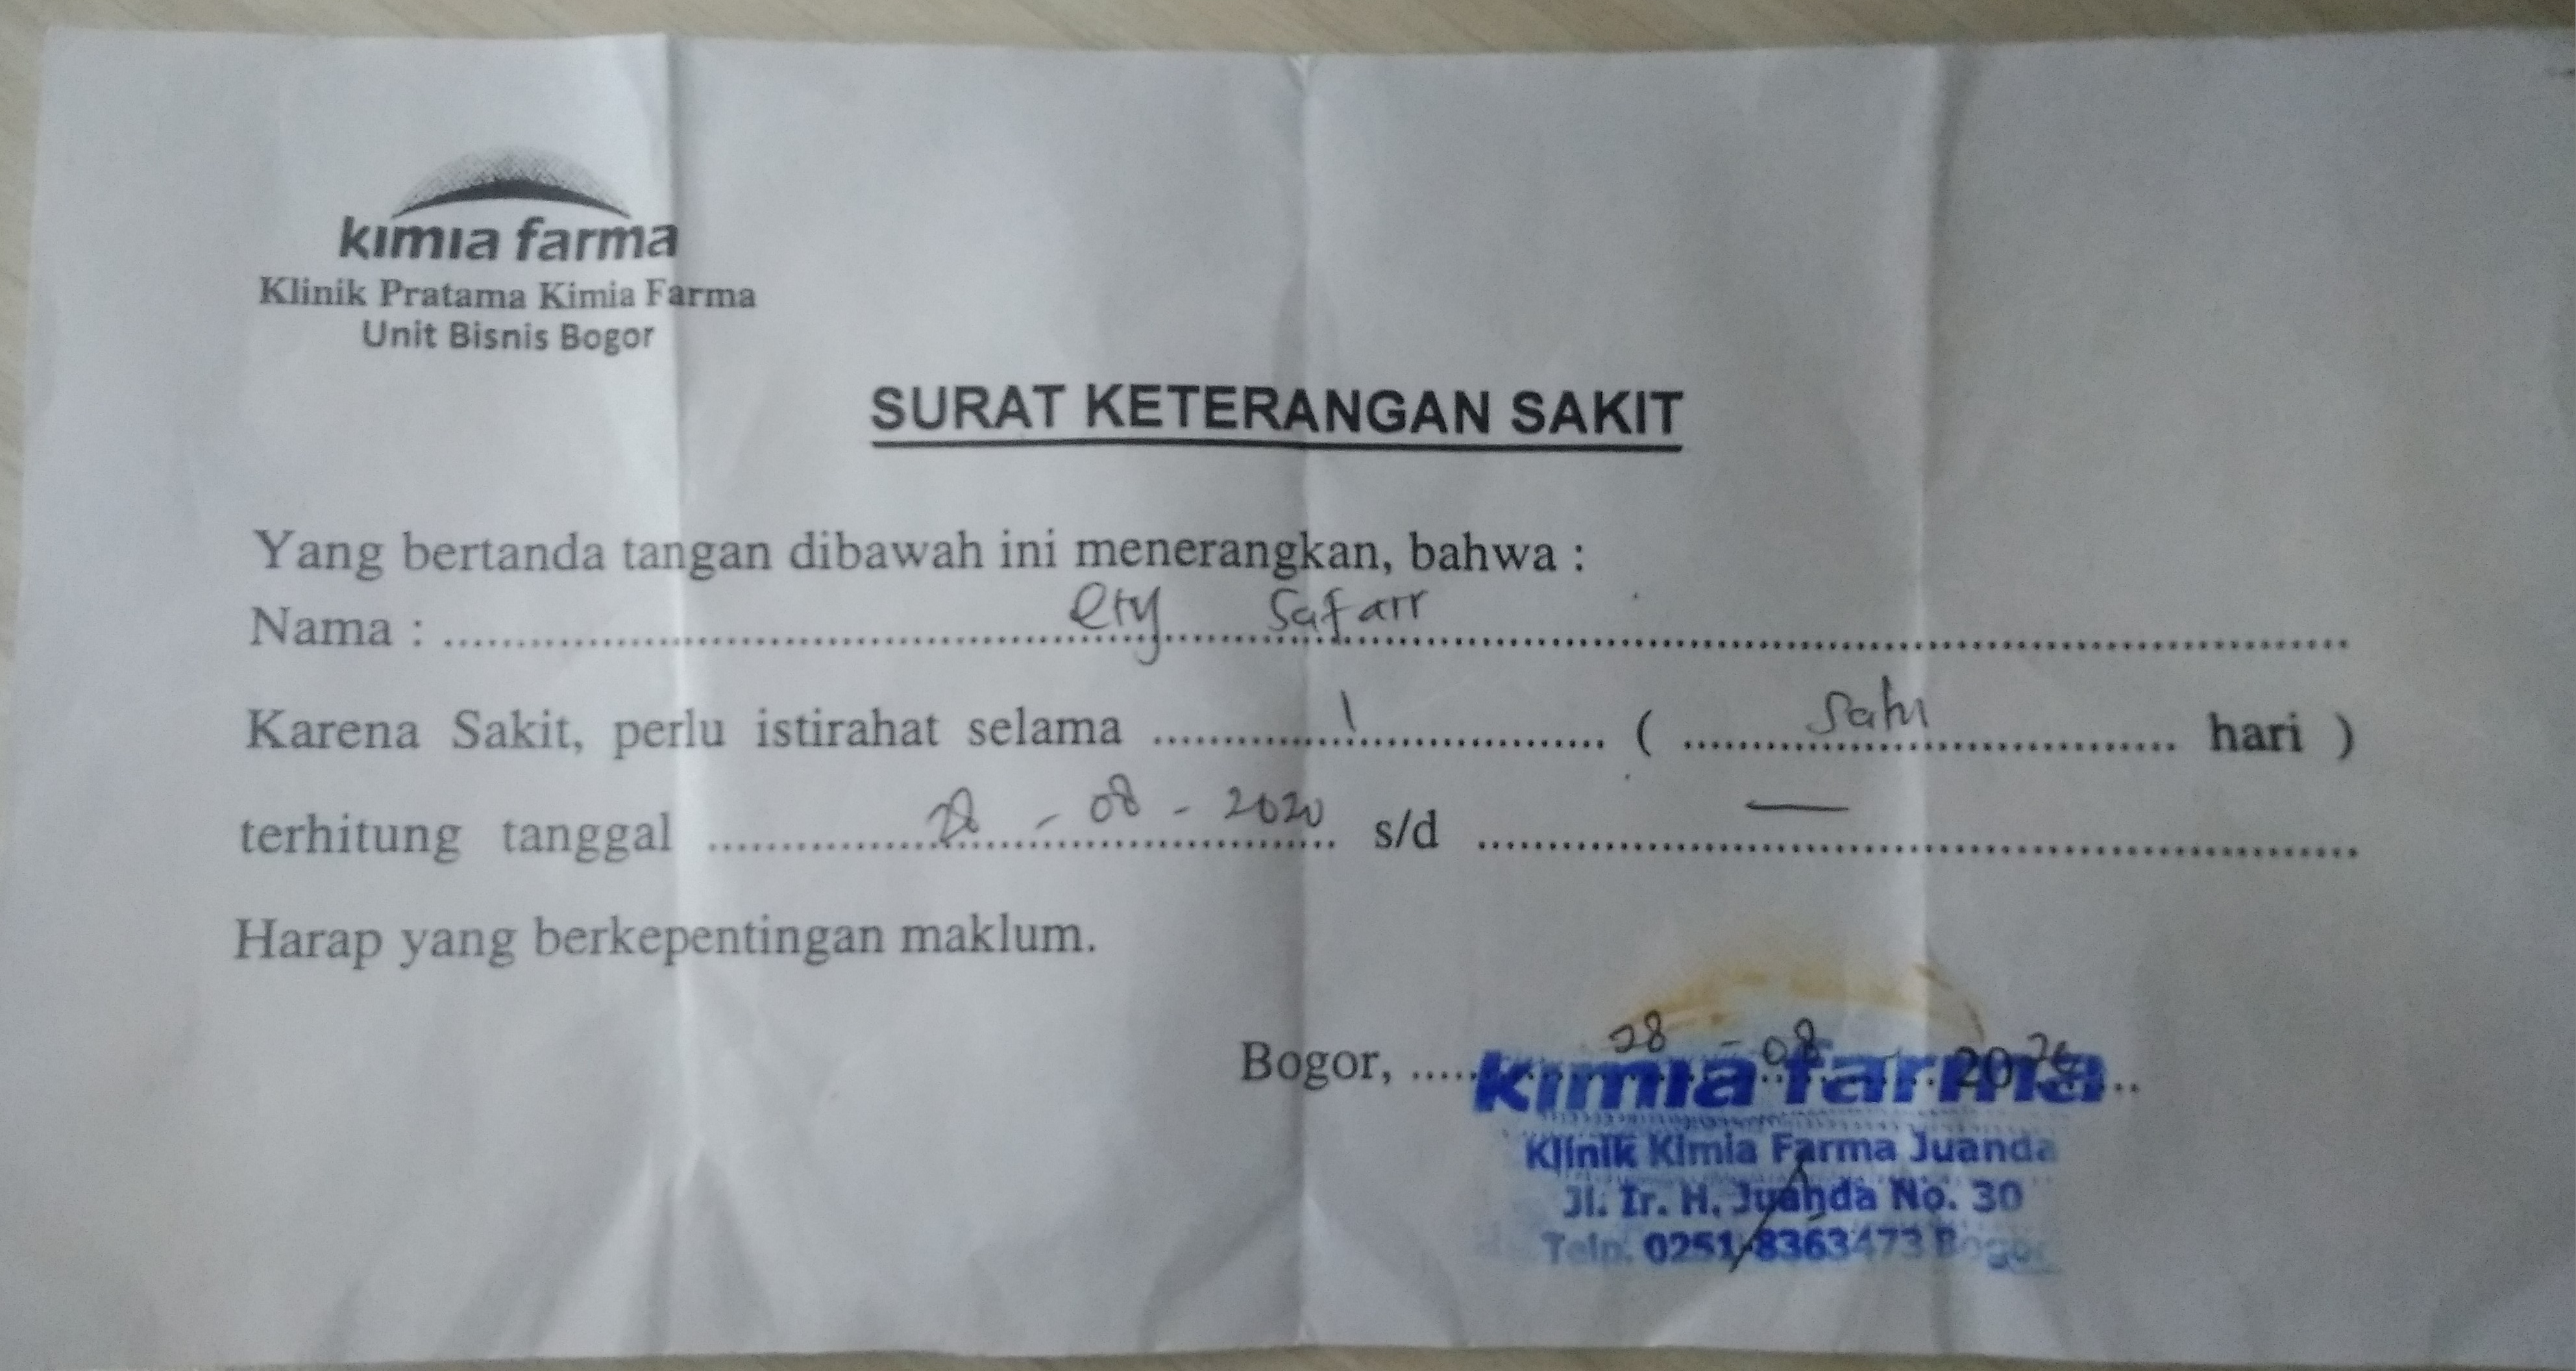 kimia farma
Klinik Pratama Kimia Farma
Unit Bisnis Bogor
SURAT KETERANGAN SAKIT
Yang bertanda tangan dibawah ini menerangkan, bahwa :
Nama : Safari
Karena Sakit, perlu istirahat selama 1 ( Satu hari )
terhitung tanggal 28 - 08 - 2020 s/d —
Harap yang berkepentingan maklum.
Bogor, 28 - 08 - 2020
kimia farma
Klinik Kimia Farma Juanda
Jl. Ir. H. Juanda No. 30
Telp. 0251/8363473 Bogor